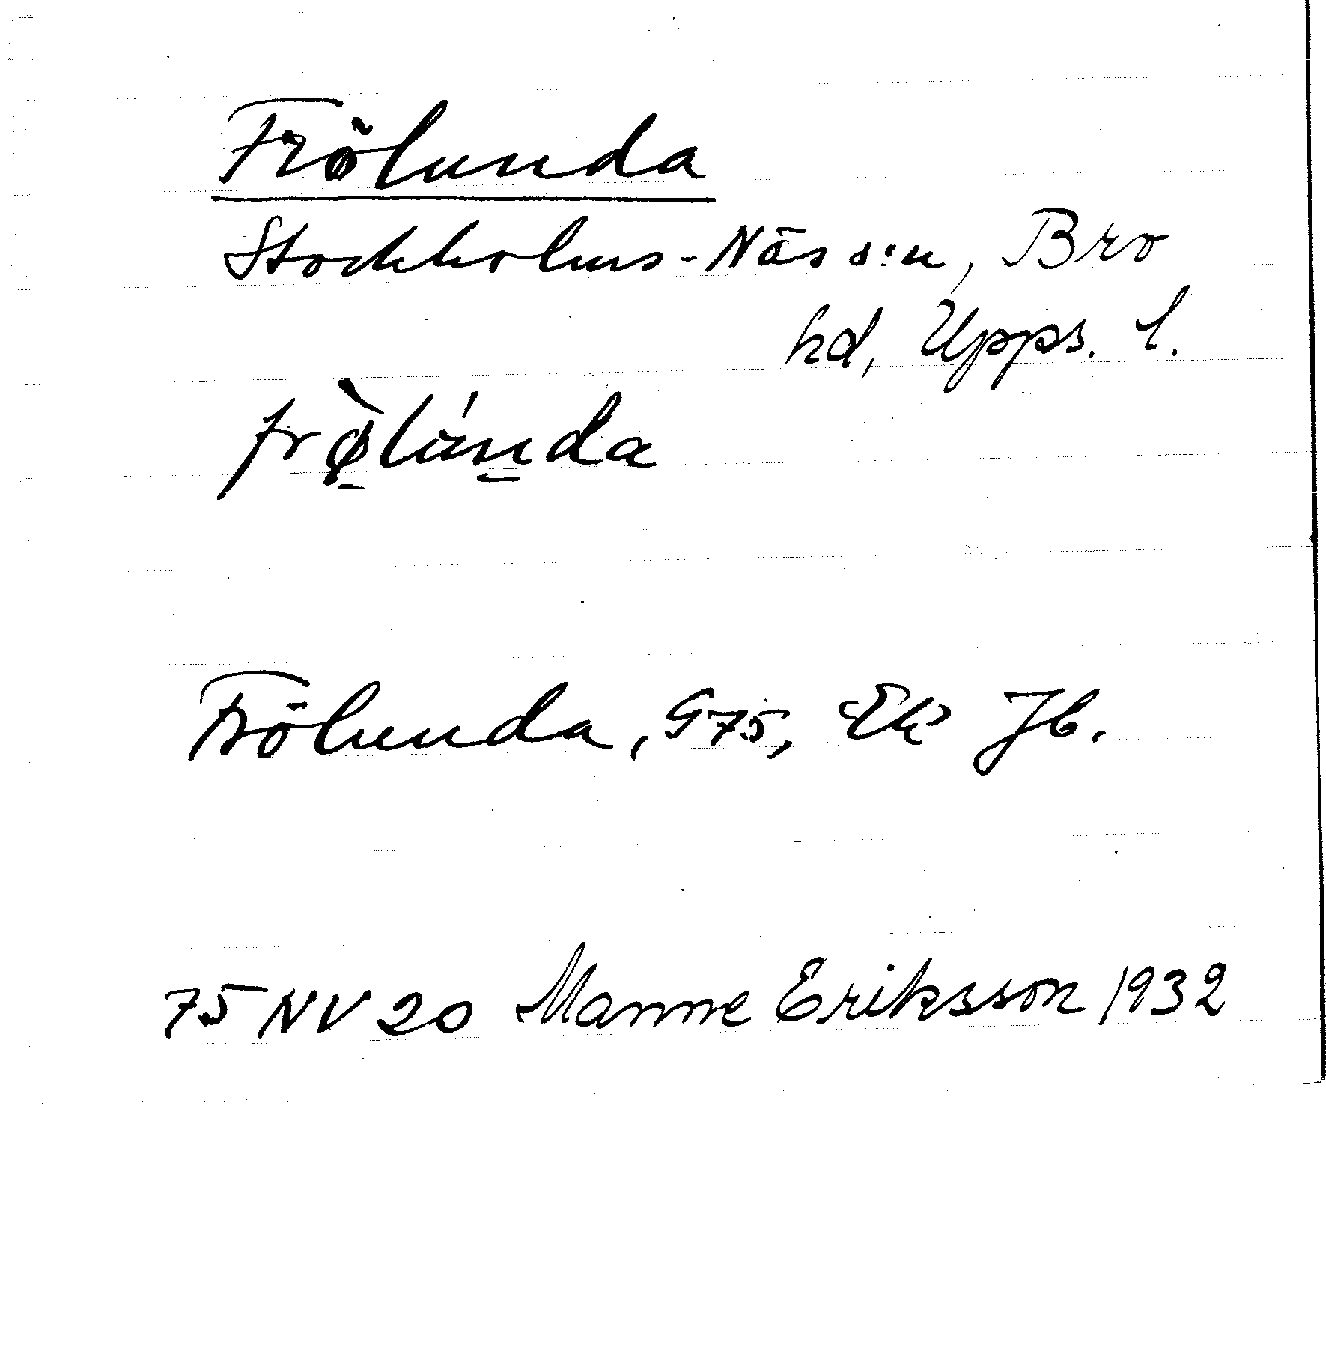 Frölunda
Stockholms-Näs s:n, Bro
hd, Upps. l.
frø̀lúnda
Frölunda, G75, Ek Jb.
75 NV 20 Manne Eriksson 1932